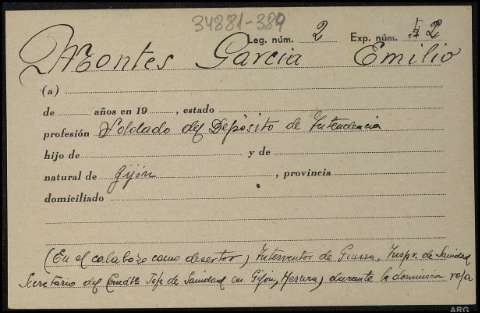 34881-389
Leg. núm. 2 Exp. núm. 42
Montes Garcia Emilio
(a)
de años en 19, estado
profesión Soldado del Depósito de Intendencia
hijo de y de
natural de Gijón, provincia
domiciliado
(En el calabozo como desertor, Interventor de Guerra, Inspr. de Sanidad
Secretario del Comité de Sanidad en Gijón, Herrera) durante la dominión roja
ARG